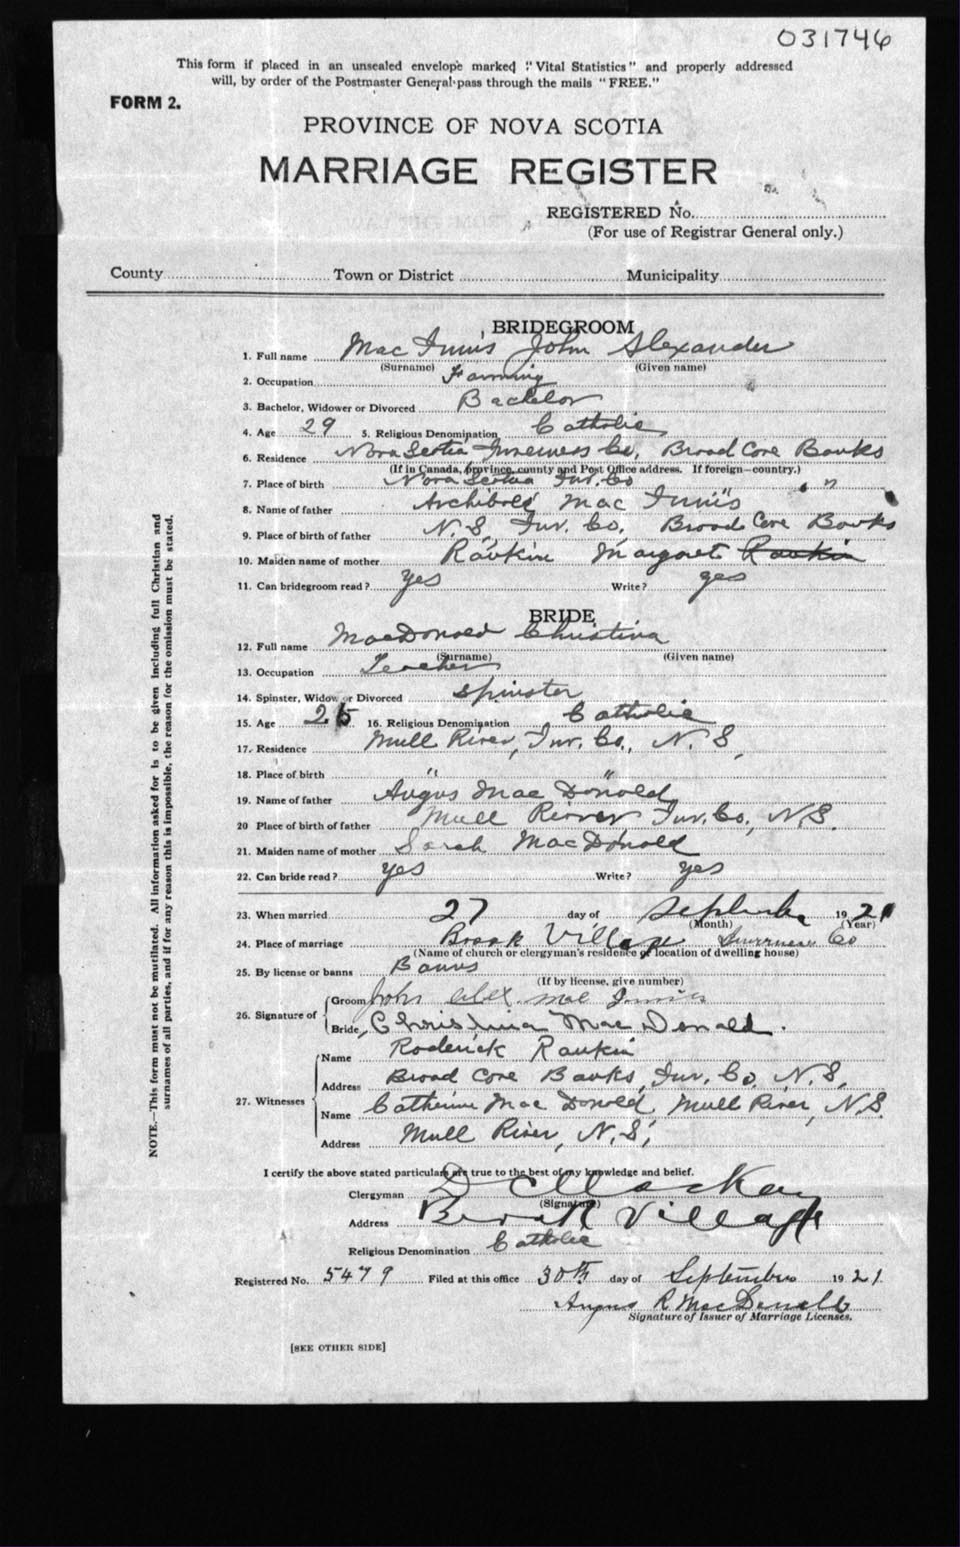 031746
This form if placed in an unsealed envelope marked "Vital Statistics" and properly addressed
will, by order of the Postmaster General pass through the mails "FREE."
FORM 2.
PROVINCE OF NOVA SCOTIA
MARRIAGE REGISTER
REGISTERED No.
(For use of Registrar General only.)
County Town or District Municipality
BRIDEGROOM
1. Full name Mac Innis John Alexander
(Surname) (Given name)
2. Occupation Farming
3. Bachelor, Widower or Divorced Bachelor
4. Age 29 5. Religious Denomination Catholic
6. Residence Nova Scotia Inverness Co. Broad Cove Banks
(If in Canada, province, county and Post Office address. If foreign—country.)
7. Place of birth Nova Scotia Inv. Co " "
8. Name of father Archibald Mac Innis
9. Place of birth of father N.S. Inv. Co. Broad Cove Banks
10. Maiden name of mother Rankin Margaret Rankin
11. Can bridegroom read? yes Write? yes
BRIDE
12. Full name MacDonald Christina
(Surname) (Given name)
13. Occupation Teacher
14. Spinster, Widow or Divorced Spinster
15. Age 25 16. Religious Denomination Catholic
17. Residence Mull River, Inv. Co., N.S,
18. Place of birth " "
19. Name of father Angus Mac Donald
20 Place of birth of father Mull River Inv. Co., N.S.
21. Maiden name of mother Sarah MacDonald
22. Can bride read? yes Write? yes
23. When married 27 day of September 1921
(Month) (Year)
24. Place of marriage Brook Village Inverness Co
(Name of church or clergyman's residence or location of dwelling house)
25. By license or banns Banns
(If by license, give number)
26. Signature of Groom John Alex. Mac Innis
Bride, Christina Mac Donald.
27. Witnesses
Name Roderick Rankin
Address Broad Cove Banks, Inv. Co, N.S,
Name Catherine Mac Donald, Mull River, N.S.
Address Mull River, N.S,
I certify the above stated particulars are true to the best of my knowledge and belief.
Clergyman D MacKay
(Signature)
Address Brook Village
Religious Denomination Catholic
Registered No. 5479 Filed at this office 30th day of September 1921.
Angus R MacDonald
Signature of Issuer of Marriage Licenses.
[SEE OTHER SIDE]
NOTE.—This form must not be mutilated. All information asked for is to be given including full Christian and
surnames of all parties, and if for any reason this is impossible, the reason for the omission must be stated.